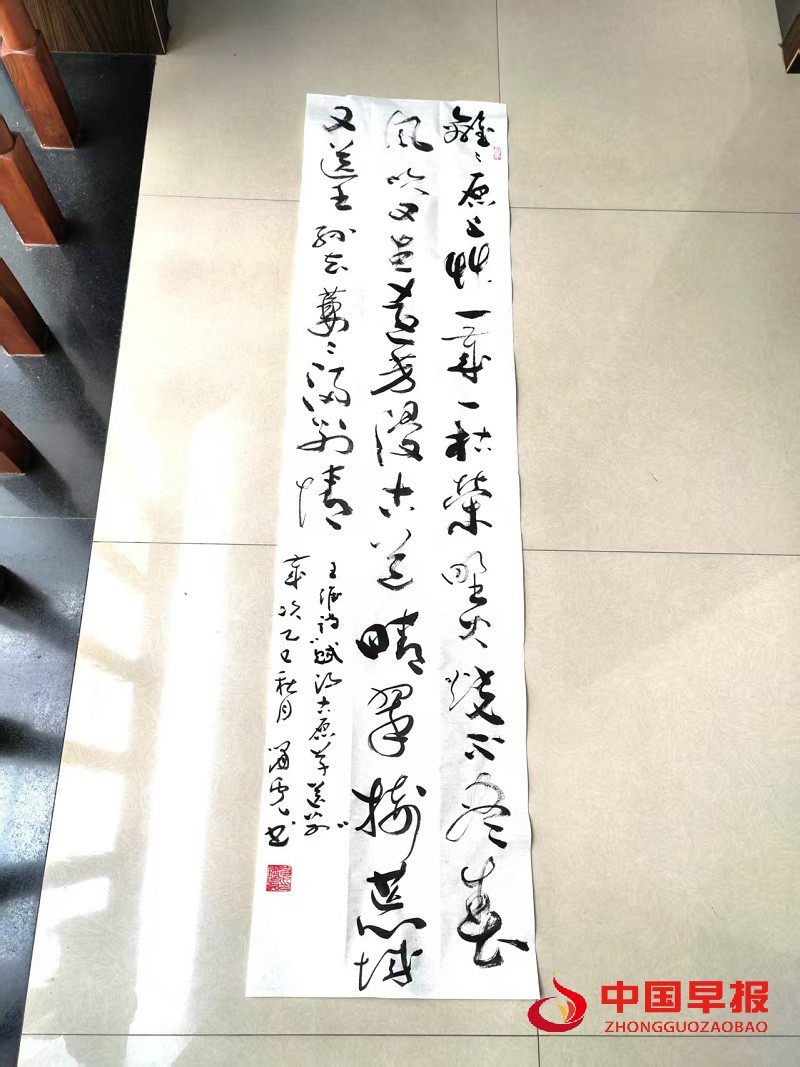 離〻原上艸一歲一枯榮野火燒不盡春
風吹又生遠芳侵古道晴翠接荒城
又送王孫去萋〻滿別情
王維詩"賦得古原草送別"
歲次乙巳秋月 書
中国早报
ZHONGGUOZAOBAO